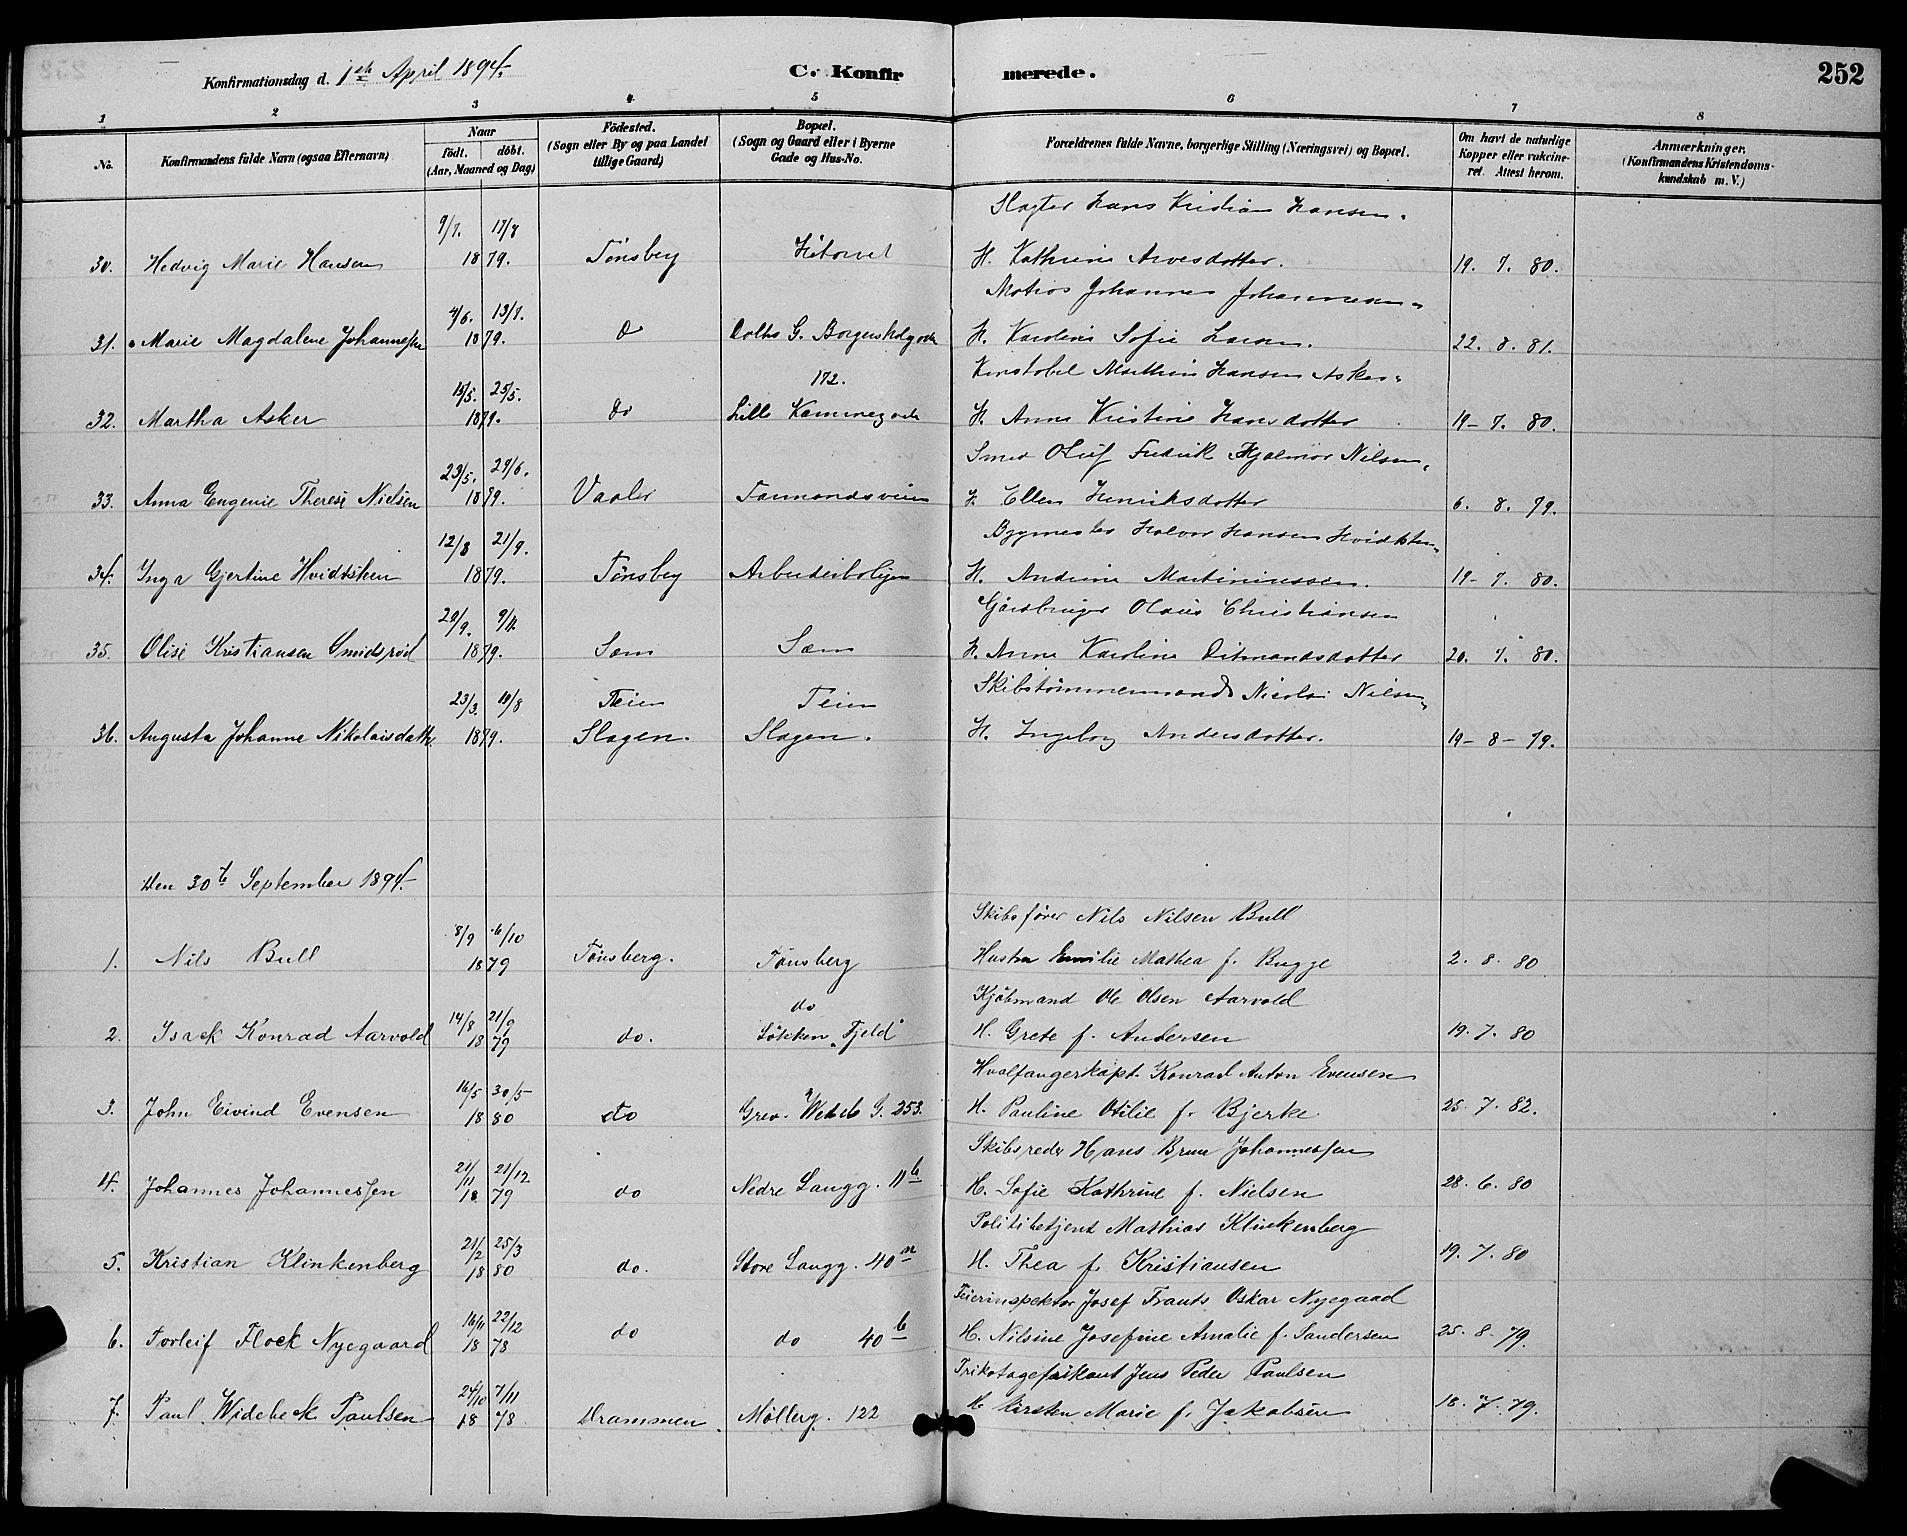 Konfirmationsdag d. 1ste April 1894.
C. Konfirmerede.
252
1 2 3 4 5 6 7 8
No.
Konfirmandens fulde Navn (ogsaa Efternavn)
Naar
født. døbt.
(Aar, Maaned og Dag)
Fødested.
(Sogn eller By og paa Landet
tillige Gaard)
Bopæl.
(Sogn og Gaard eller i Byerne
Gade og Hus-No.
Forældrenes fulde Navne, borgerlige Stilling (Næringsvei) og Bopæl.
Om havt de naturlige
Kopper eller vakcine-
ret. Attest herom.
Anmærkninger.
(Konfirmandens Kristendoms-
kundskab m. V.)
Slagter Hans Kristian Hansen.
30. Hedvig Marie Hansen 9/7. 17/8 1879. Tønsberg Høtorvet H. Kathrine Arvesdotter. 19. 7. 80.
Matros Johannes Johannesen.
31. Marie Magdalene Johannessen 4/6. 13/7. 1879. Do G. Borgeskolegade H. Karoline Sofie Larsen. 22. 8. 81.
172.
Konstabel Matthis Hansen Asker.
32. Martha Asker 15/5. 25/5. 1879. do Lille Kammegade H. Anne Kristine Hansdotter 19- 7. 80.
Smed Oluf Fredrik Hjalmar Nilsen.
33. Anna Eugenie Therese Nielsen 23/5. 29/6. 1879. Vaaler Farmandsveien H. Ellen Henriksdotter 6. 8. 79.
Bygmester Halvor Hansen Hvidtsten.
34. Inga Gjertine Hvidtsteen 12/8 21/9. 1879. Tønsberg Arbeiderboligen H. Andrine Martiniussen. 19- 7. 80.
Gaardbruger Olaus Christiansen
35. Olise Kristiansen Smidsrød 20/9. 9/11. 1879. Sem Sem H. Anne Karoline Ditmandsdotter 20. 7. 80.
Skibstømmermand Nicolai Nilsen.
36. Augusta Johanne Nikolaisdatter 23/3. 10/8 1879. Teien Slagen. Teien Slagen. H. Ingeborg Andersdotter. 19- 8- 79.
Den 30te September 1894.
Skibsfører Nils Nilsen Bull
1. Nils Bull 8/9 6/10 1879 Tønsberg. Tønsberg Hustru Emilie Mathea f. Bugge 2. 8. 80
Kjøbmand Ole Olsen Aarvold
2. Isack Konrad Aarvold 14/8 21/9 1879 do. do Løkken "Fjeld" H. Grete f. Andersen 19. 7. 80
Hvalfangerkapt. Konrad Anton Evensen
3. John Eivind Evensen 16/5 30/5 1880 do Grev. Wedels G. 253. H. Pauline Otilie f. Bjerke. 25. 7. 82.
Skibsreder Hans Brun Johannessen
4. Johannes Johannessen 21/11 21/12 1879 do Nedre Langg. 11b H. Sofie Kathrine f. Nielsen 28. 6. 80
Politibetjent Mathias Klinkenberg
5. Kristian Klinkenberg 21/2 25/3 1880 do. Store Langg. 40n H. Thea f. Kristiansen 19. 7. 80
Feierinspektør Josef Frants Oskar Nyegaad
6. Torleif Flock Nyegaard 16/11 22/12 1878 do do 40b H. Nilsine Josefine Amalie f. Sandersen 25. 8. 79.
Trikotagefabrikant Jens Peder Paulsen
7. Paul Widebeck Paulsen 24/10 7/11 1878 Drammen. Møllerg. 122 H. Kirsten Marie f. Jakobsen 18. 7. 79.